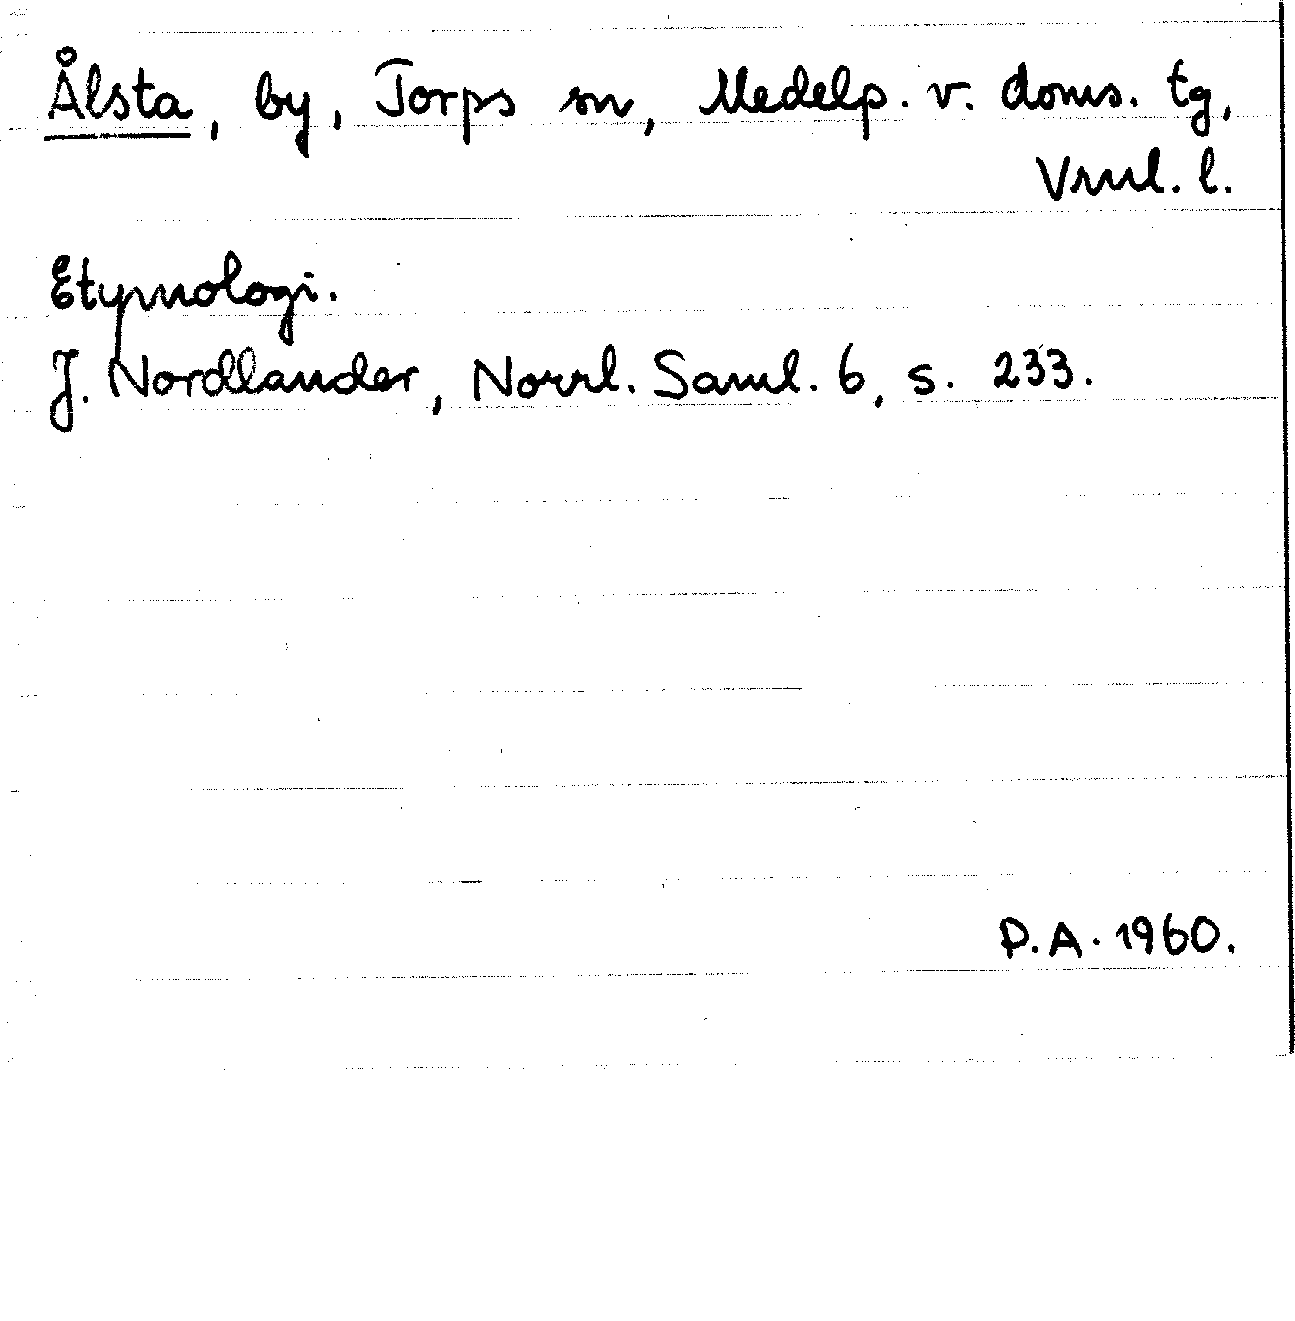 Ålsta, by, Torps sn, Medelp. v. doms. tg,
Vnl. l.
Etymologi.
J. Nordlander, Norrl. Saml. 6, s. 233.
P.A. 1960.